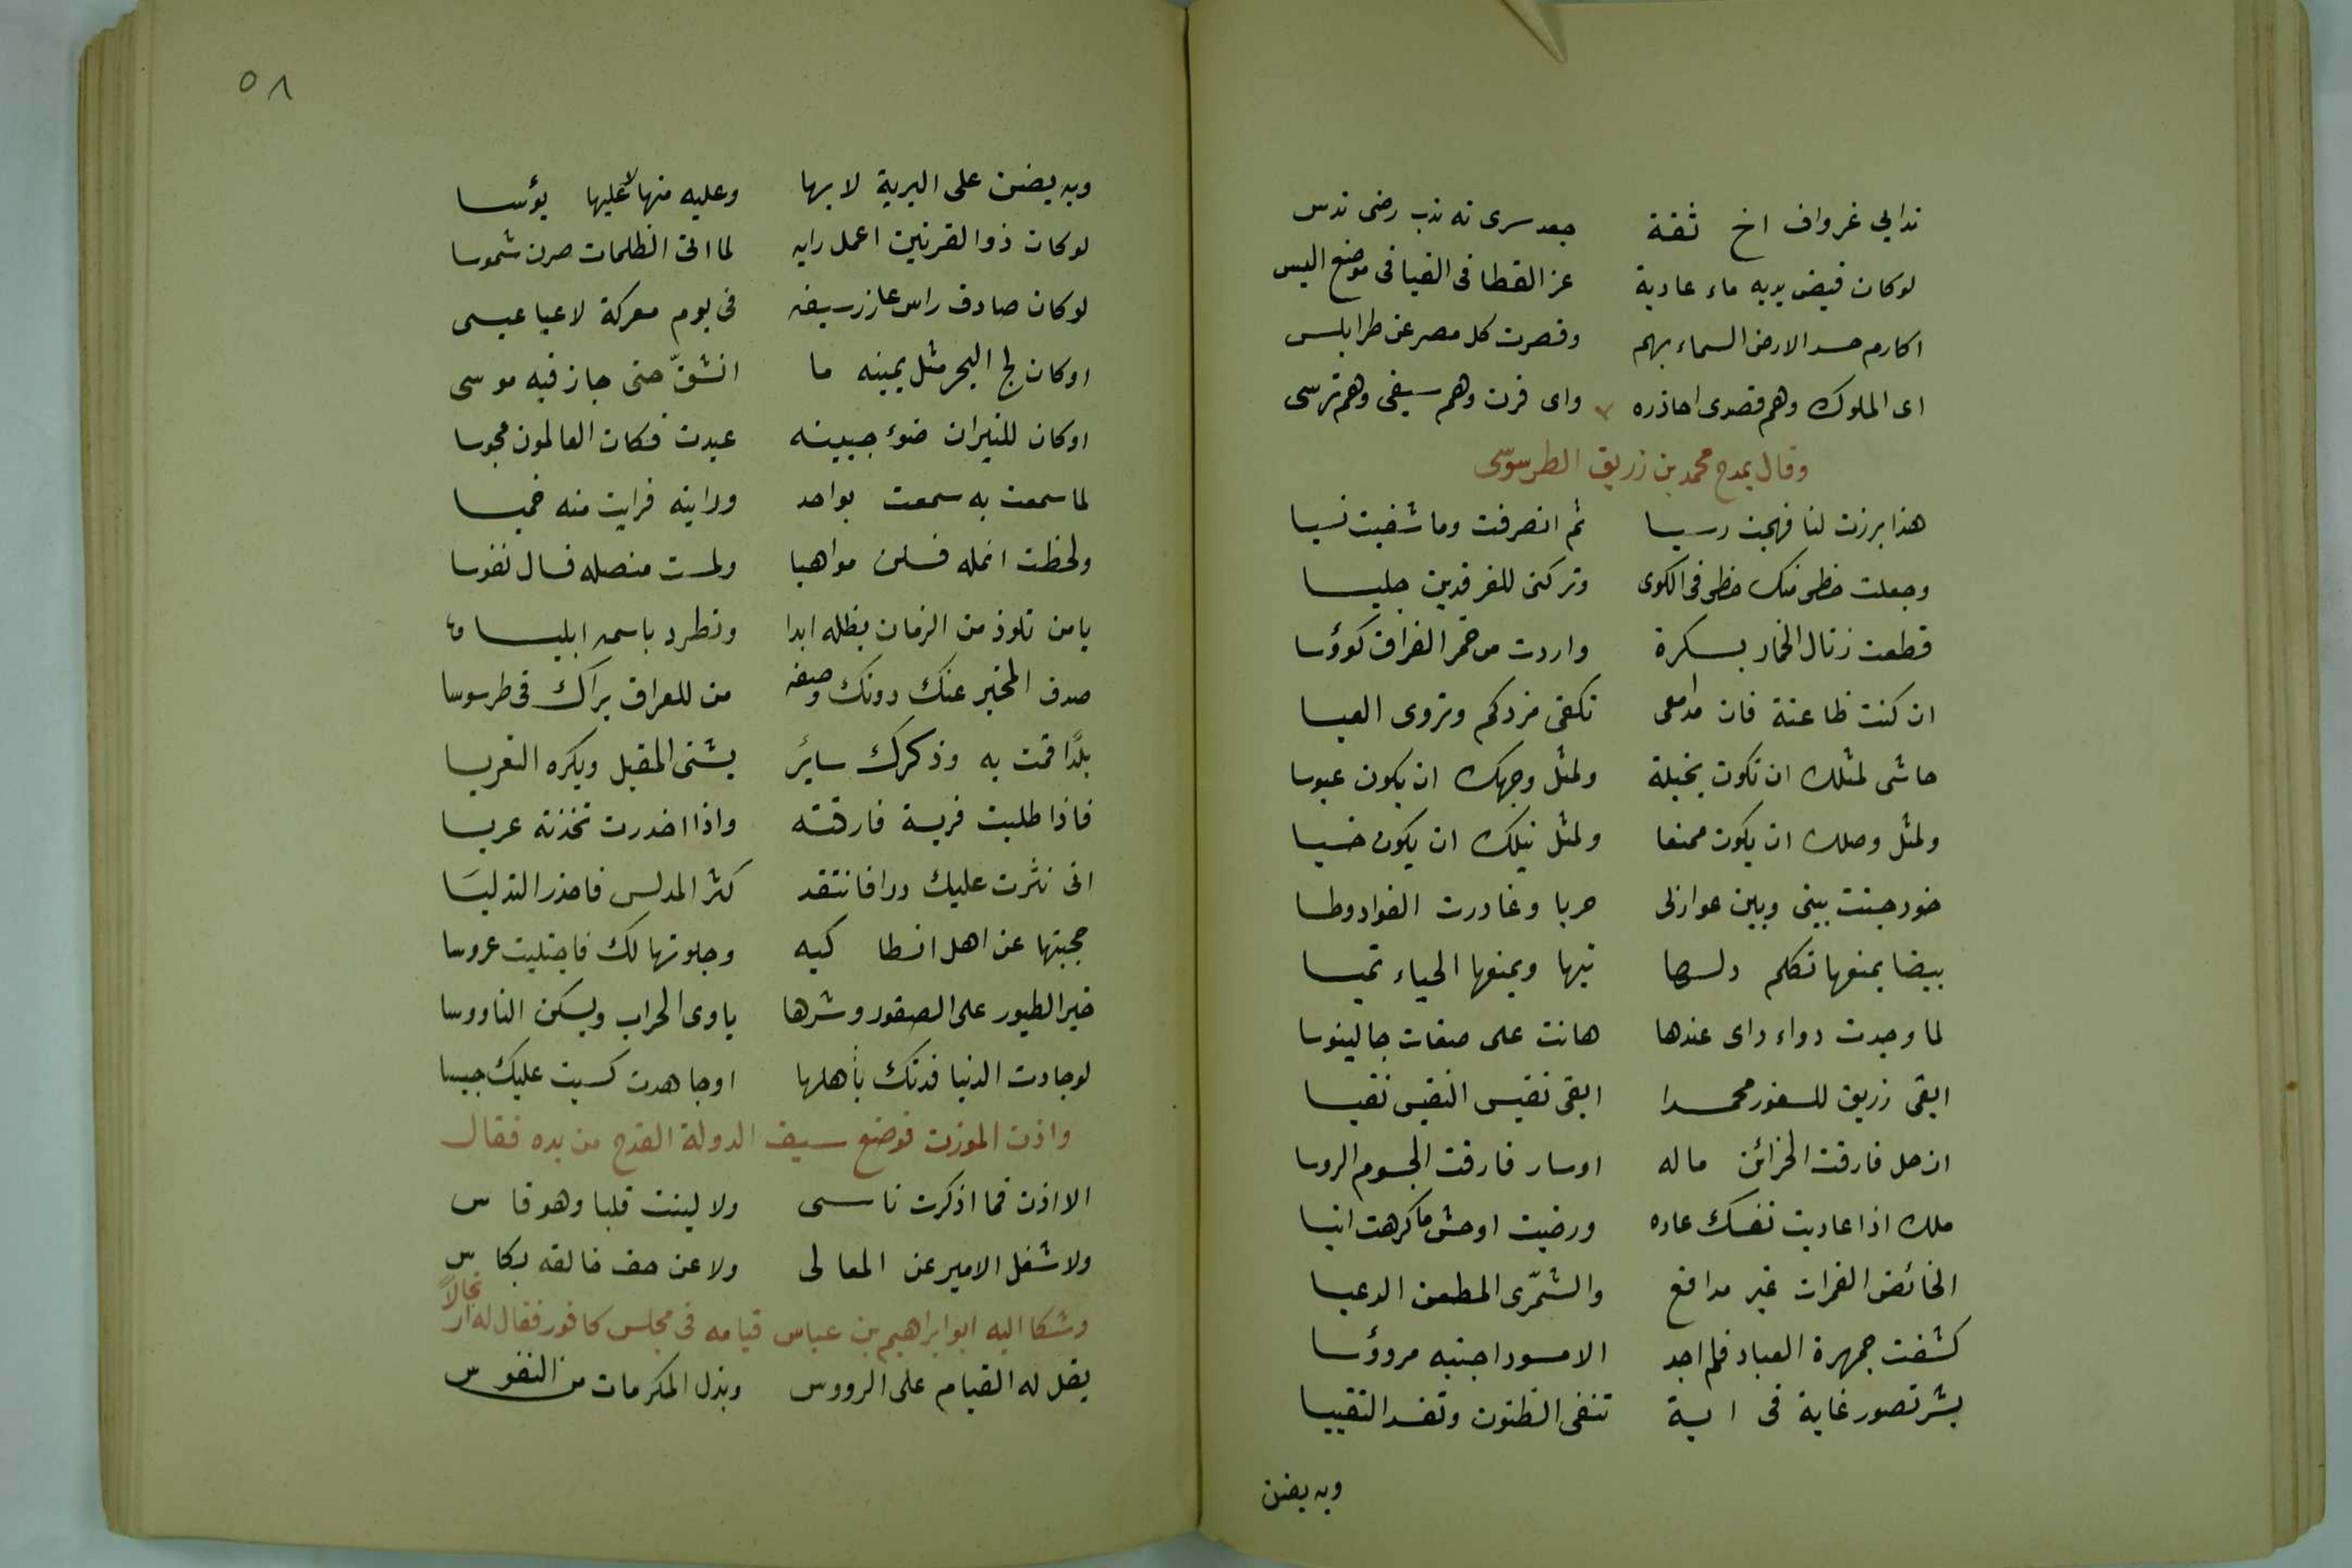 ندابي غرواف اخ ثقة جعد سرى نه ندب رضى ندس
لوكان فيض يديه ماء عادية عز القطا فى الفيافى موضع اليبس
اكارم حسد الارض السماء بهم وقصرت كل مصر عن طرابلس
اى الملوك وهم قصدى احاذره واى قرن وهم سيفى وهم ترسى
وقال يمدح محمد بن زريق الطرسوسى
هذا برزت لنا فهجت رسيسا ثم انصرفت وما شفيت نسيسا
وجعلت حظى منك حظى فى الكرى وتركتنى للفرقدين جليسا
قطعت ذيال الخمار بسكرة واردت من خمر الفراق كوؤسا
ان كنت ظاعنة فان مدامعى تكفى مزدكم وتروى العيسا
حاشى لمثلك ان تكون بخيلة ولمثل وجهك ان يكون عبوسا
ولمثل وصلك ان يكون ممنعا ولمثل نيلك ان يكون خسيسا
خود جننت بينى وبين عواذلى حربا وغادرت الفواد وطيسا
بيضا يمنعها تكلم دلها تيها ويمنعها الحياء تميسا
لما وجدت دواء داى عندها هانت على صفات جالينوسا
ابقى زريق للثغور محمدا ابقى نفيس النفيس نفيسا
ان حل فارقت الخزائن ماله اوسار فارقت الجسوم الروسا
ملك اذا عاديت نفسك عاده ورضيت اوحش ما كرهت انيسا
الخائض الغمرات غير مدافع والشمّرى المطعن الدعيسا
كشفت جمهرة العباد فلم اجد الا مسودا جنبه مرؤسا
بشر تصور غاية فى اية تنفى الظنون وتفسد التقييسا
وبه يضن
٥٨
وبه يضن على البرية لا بها وعليه منها لا عليها يؤسا
لوكان ذو القرنين اعمل رايه لما اتى الظلمات صرن شموسا
لوكان صادف راس عازر سيفه فى يوم معركة لاعيا عيسى
اوكان لج البحر مثل يمينه ما انشقّ حتى جاز فيه موسى
اوكان للنيران ضوء جبينه عبدت فكان العالمون مجوسا
لما سمعت به سمعت بواحد ورايته فرايت منه خميسا
ولحظت انمله فسلن مواهبا ولمست منصله فسال نفوسا
يا من نلوذ من الزمان بظله ابدا ونطرد باسمه ابليسا
صدق المخبر عنك دونك وصفه من للعراق يراك فى طرسوسا
بلدًا قمت به وذكرك سائر يشنى المقيل ويكره التعريسا
فاذا طلبت فريسة فارقته واذا اخدرت تخذته عريسا
انى نثرت عليك درا فانتقد كثر المدلس فاحذر التدليسا
حجبتها عن اهل انطا كيه وجلوتها لك فاجتليت عروسا
خير الطيور على القصور وشرها ياوى الخراب ويسكن الناووسا
لوجادت الدنيا فدتك بأهلها اوجاهدت كتبت عليك حبيسا
واذن الموذن فوضع سيف الدولة القدح من يده فقال
الا اذن فما اذكرت ناسى ولا لينت قلبا وهو قا س
ولا شغل الامير عن المعالى ولا عن حق خالقه بكا س
وشكا اليه ابو ابراهيم بن عباس قيامه فى مجلس كافور فقال له ارتجالاً
يقل له القيام على الرووس وبذل المكرمات من النفوس